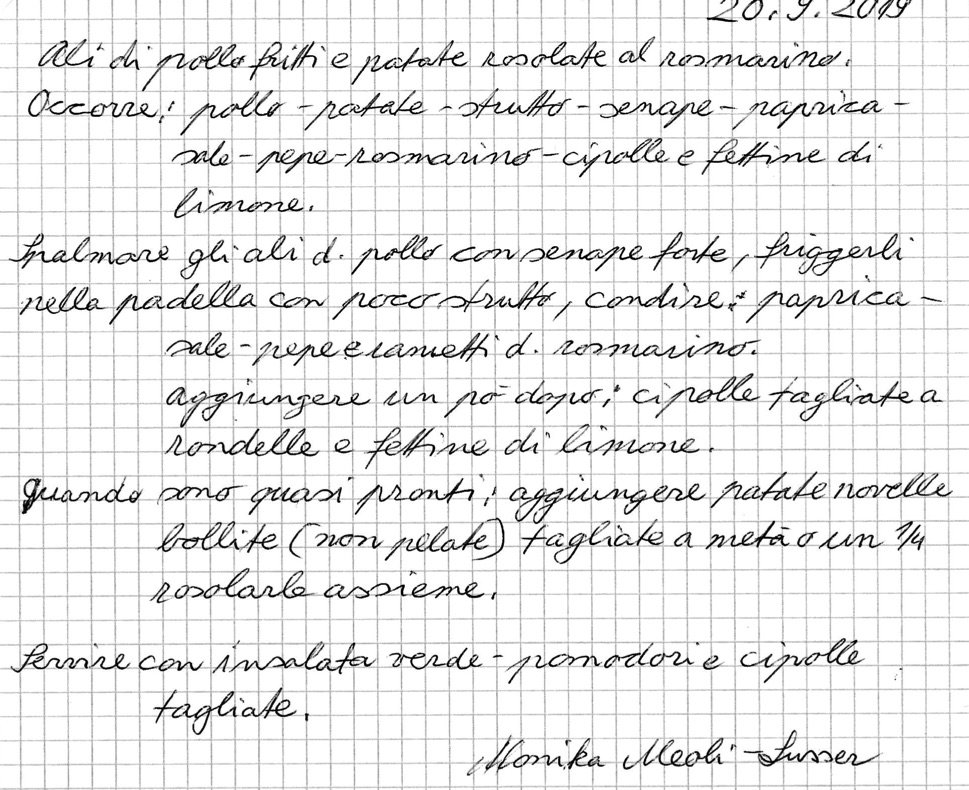 20.9.2019
Ali di pollo fritti e patate rosolate al rosmarino.
Occorre: pollo - patate - strutto - senape - paprica -
sale - pepe - rosmarino - cipolle e fettine di
limone.
Spalmare gli ali d. pollo con senape forte, friggerli
nella padella con poco strutto, condire: paprica -
sale - pepe e rametti d. rosmarino.
aggiungere un pò dopo: cipolle tagliate a
rondelle e fettine di limone.
Quando sono quasi pronti: aggiungere patate novelle
bollite (non pelate) tagliate a metà o un 1/4
rosolarle assieme.
Servire con insalata verde - pomodori e cipolle
tagliate.
Monika Meoli - Susser